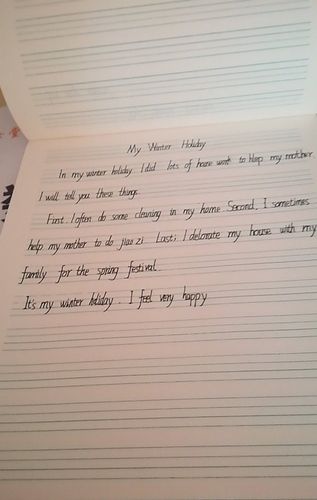 My Winter Holiday
In my winter holiday. I did lots of house work to hlep my mother
I will tell you these things.
First. I often do some cleaning in my home. Second, I sometimes
help my mother to do jiao zi. Last; I delorate my house with my
family for the spring festival.
It's my winter holiday. I feel very happy